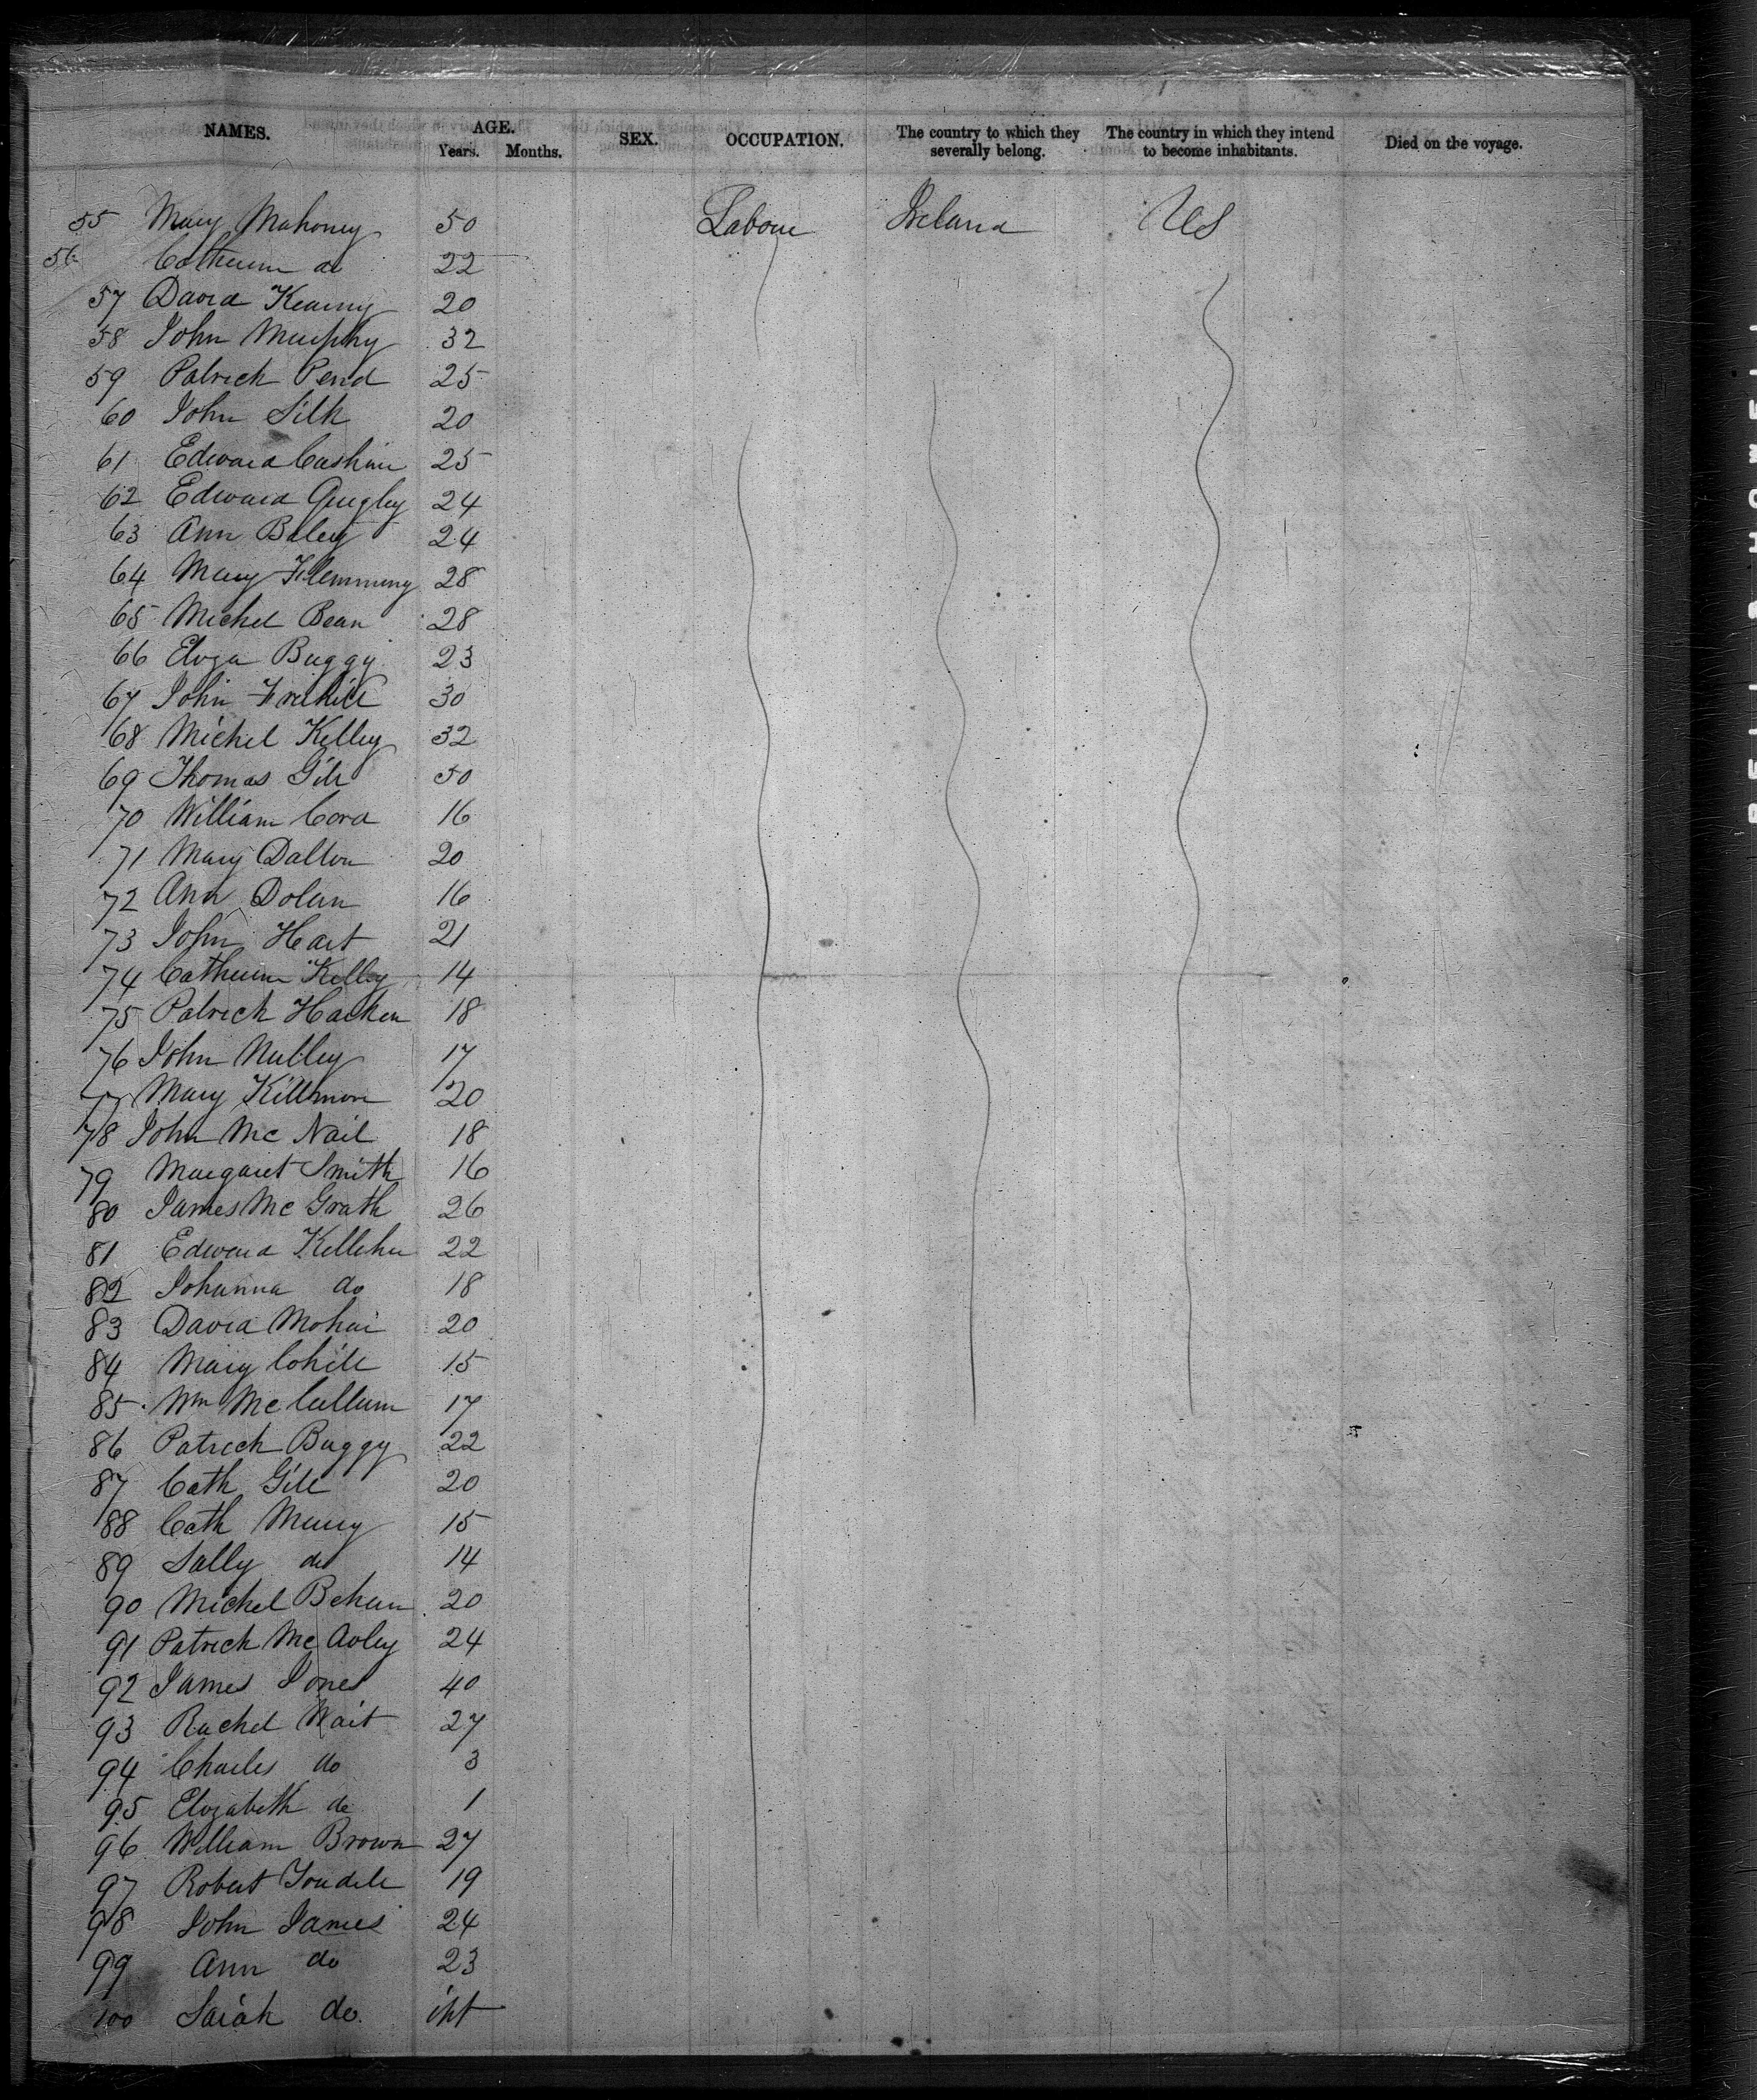 NAMES. AGE. SEX. OCCUPATION. The country to which they severally belong. The country in which they intend to become inhabitants. Died on the voyage.
Years. Months.
55 Mary Mahoney 50 Labour Ireland US
56 Catherine do 22
57 David Kearny 20
58 John Murphy 32
59 Patrick Pend 25
60 John Silk 20
61 Edward Cashin 25
62 Edward Quigley 24
63 Ann Baley 24
64 Mary Flemming 28
65 Michel Bean 28
66 Eliza Buggy 23
67 John Frehill 30
68 Michel Kelley 32
69 Thomas Gill
70 William Cord 16
71 Mary Dalton 20
72 Ann Dolan 16
73 John Hart 21
74 Catherine Kelley 14
75 Patrick Harken 18
76 John Nulley 17
77 Mary Killmore 20
78 John Mc Nail 18
79 Margaret Smith 16
80 James Mc Grath 26
81 Edward Kelleher 22
82 Johanna do 18
83 David 20
84 Mary Cohill 15
85 Wm Mc Cullum 17
86 Patrick Buggy 22
87 Cath Gill 20
88 Cath 15
89 Sally do 14
90 Michel Behan 20
91 Patrick Mc Aoley 24
92 James Jones 40
93 Rachel Wait 27
94 Charles do 3
95 Elizabeth do 1
96 William Brown 27
97 Robert 19
98 John James 24
99 Ann do 23
100 Sarah do. inft